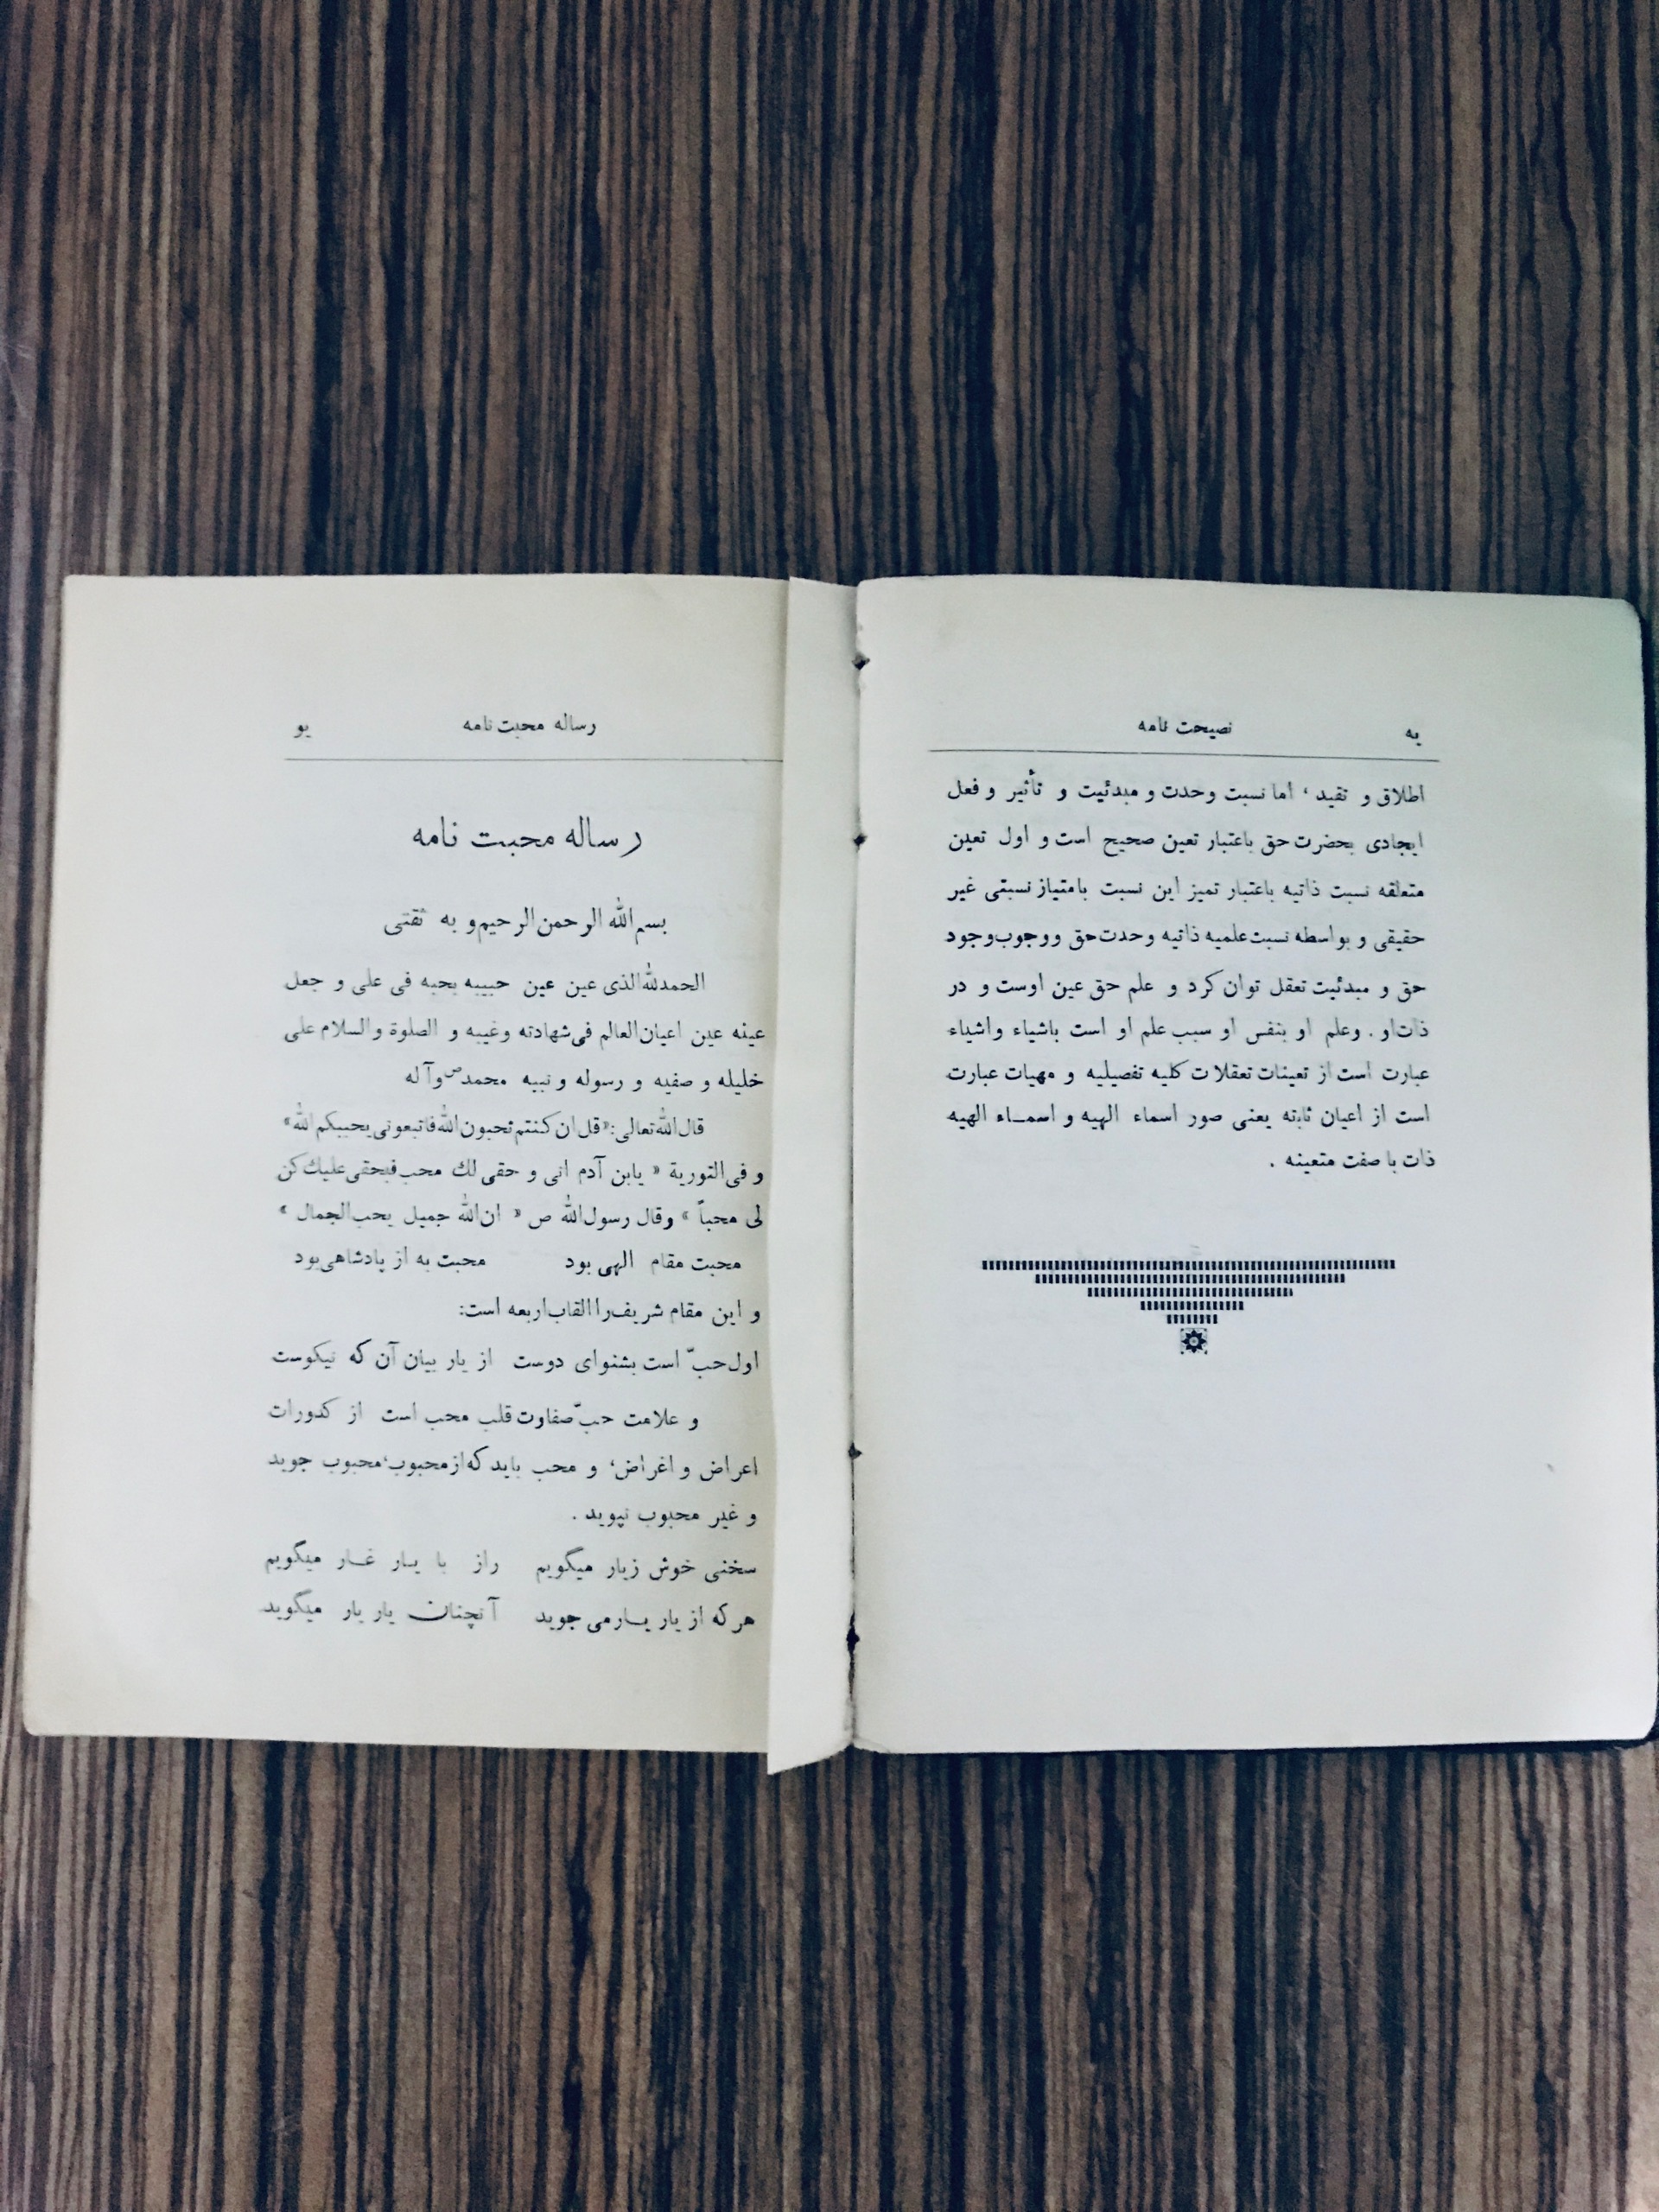 یه
نصیحت نامه
اطلاق و تقید ، اما نسبت وحدت و مبدئیت و تأثیر و فعل
ایجادی بحضرت حق باعتبار تعین صحیح است و اول تعین
متعلقه نسبت ذاتیه باعتبار تمیز این نسبت بامتیاز نسبتی غیر
حقیقی و بواسطه نسبت علمیه ذاتیه وحدت حق ووجوب وجود
حق و مبدئیت تعقل توان کرد و علم حق عین اوست و در
ذات او . وعلم او بنفس او سبب علم او است باشیاء واشیاء
عبارت است از تعینات تعقلات کلیه تفصیلیه و مهیات عبارت
است از اعیان ثابته یعنی صور اسماء الهیه و اسمــاء الهیه
ذات با صفت متعینه .
رساله محبت نامه
یو
رساله محبت نامه
بسم الله الرحمن الرحیم و به ثقتی
الحمدلله الذی عین عین حبیبه بحبه فی علی و جعل
عینه عین اعیان العالم فی شهادته وغیبه و الصلوة والسلام علی
خلیله و صفیه و رسوله و نبیه محمد ص وآله
قال الله تعالی: «قل ان کنتم تحبون الله فاتبعونی یحببکم الله»
و فی التوریة « یابن آدم انی و حقی لك محب فبحقی علیك کن
لی محباً » وقال رسول الله ص « ان الله جمیل یحب الجمال »
محبت مقام الهی بود محبت به از پادشاهی بود
و این مقام شریف را القاب اربعه است:
اول حبّ است بشنوای دوست از یار بیان آن که نیکوست
و علامت حبّ صفاوت قلب محب است از کدورات
اعراض و اغراض، و محب باید که از محبوب، محبوب جوید
و غیر محبوب نپوید .
سخنی خوش زیار میگویم راز با یــار غــار میگویم
هر که از یار یــار می جوید آنچنان یار یار میگوید